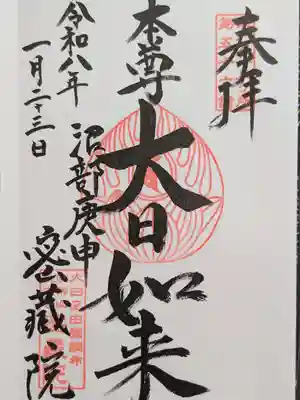 奉拝
本尊
大日如来
沼部庚申
密蔵院
令和八年
一月二十三日